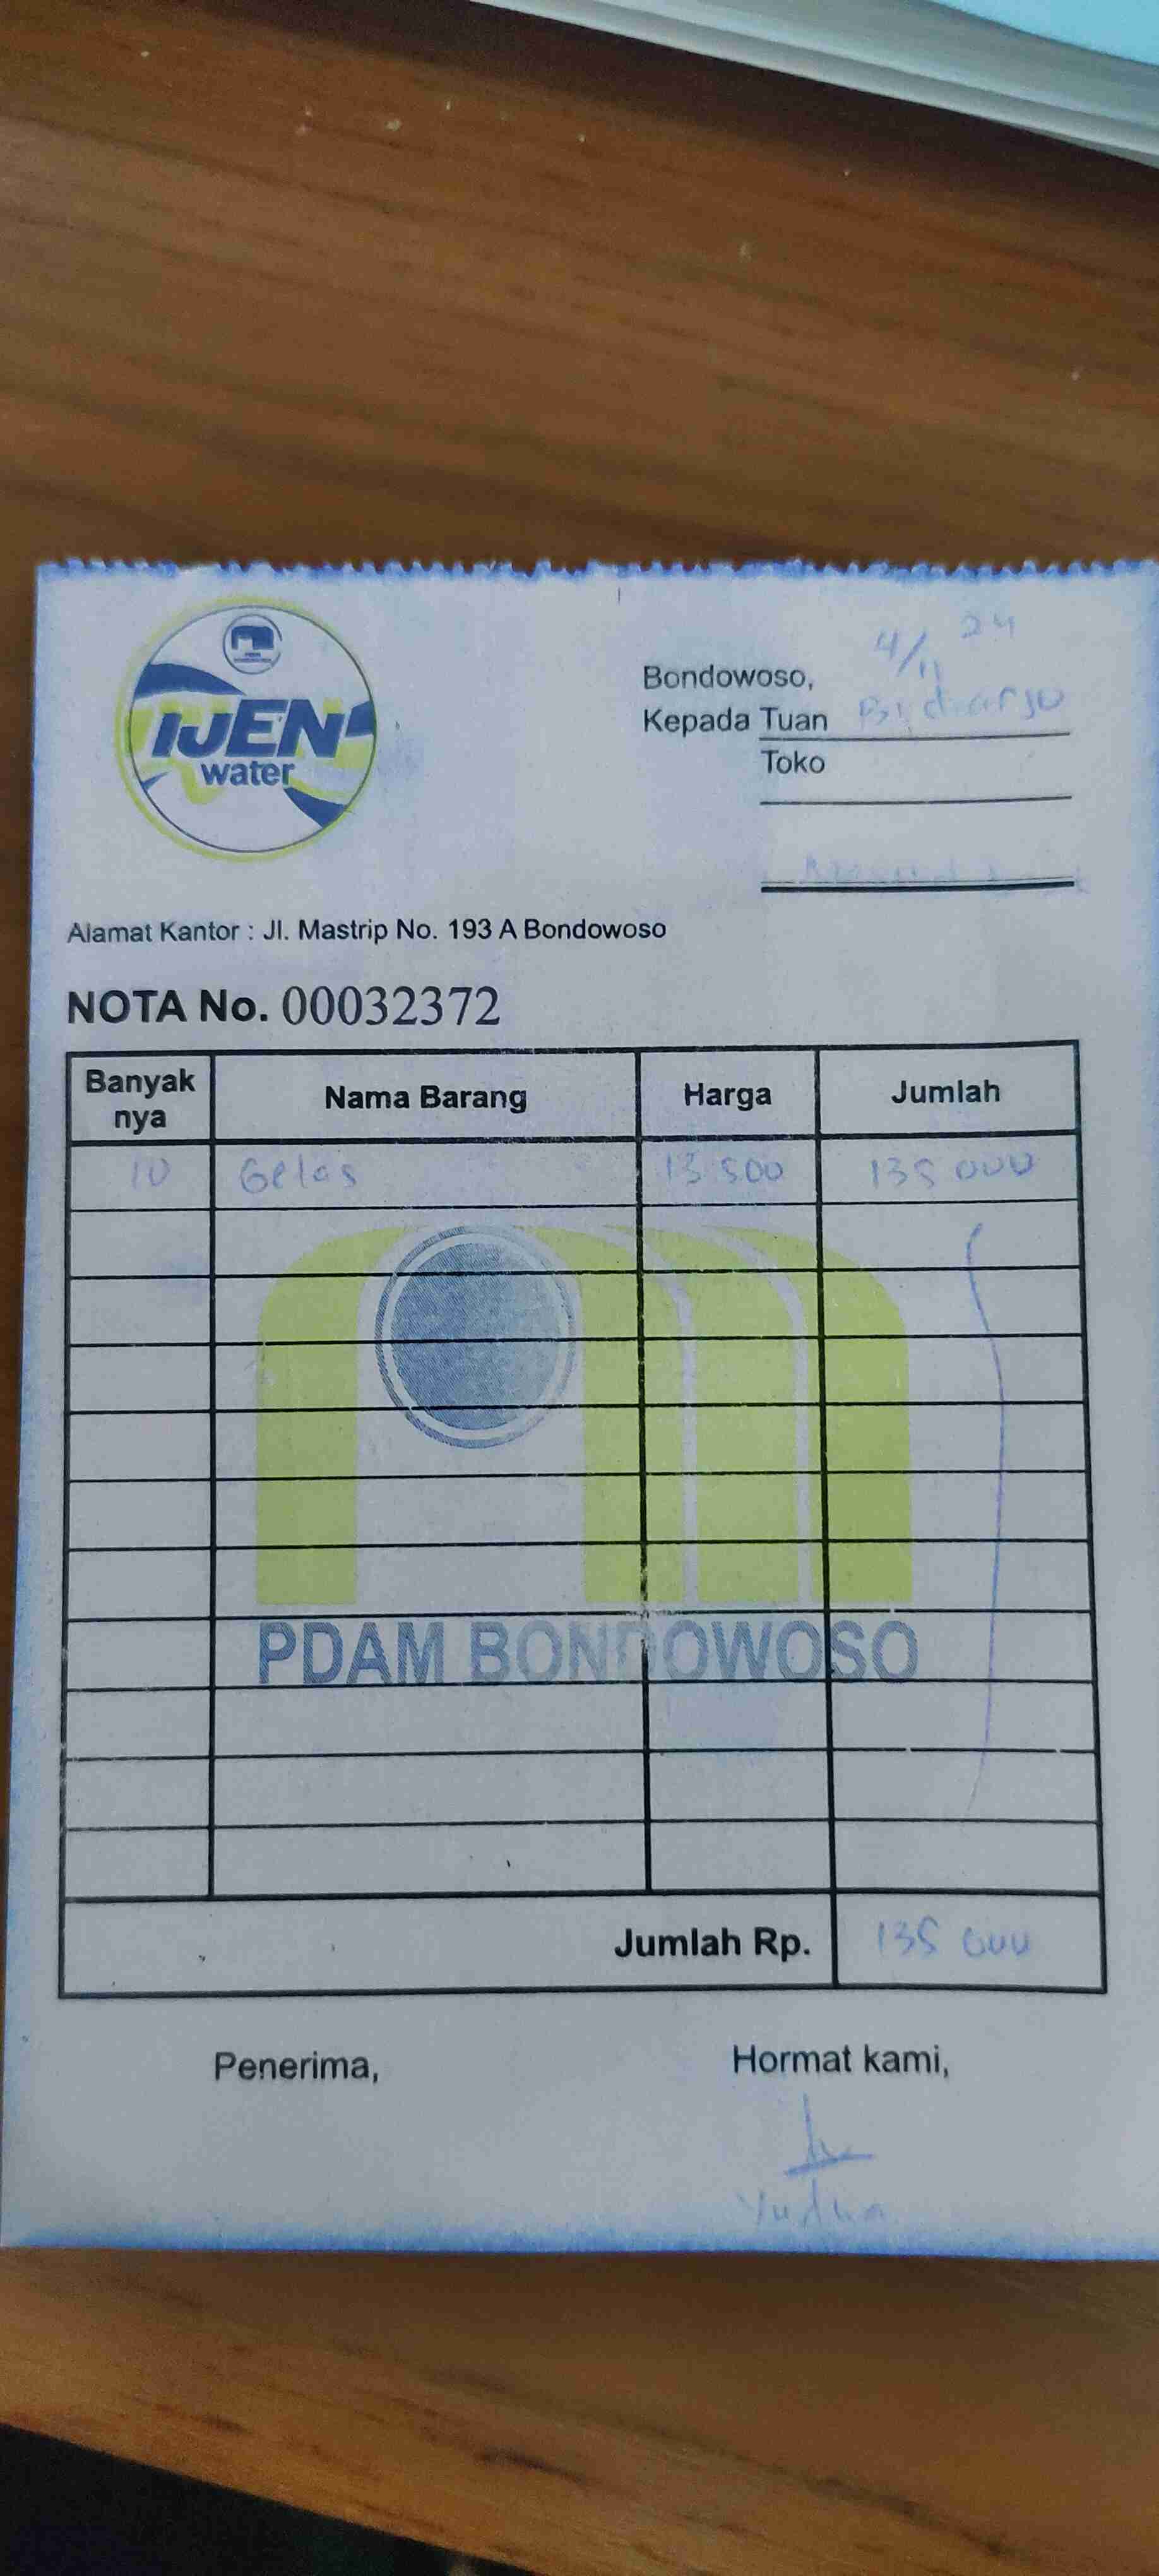 IJEN
water
Bondowoso, 4/11 24
Kepada Tuan Bidharjo
Toko
Alamat Kantor : Jl. Mastrip No. 193 A Bondowoso
NOTA No. 00032372
Banyak nya Nama Barang Harga Jumlah
10 Gelas 13.500 135 000
PDAM BONDOWOSO
Jumlah Rp. 135 000
Penerima, Hormat kami,
Yudha